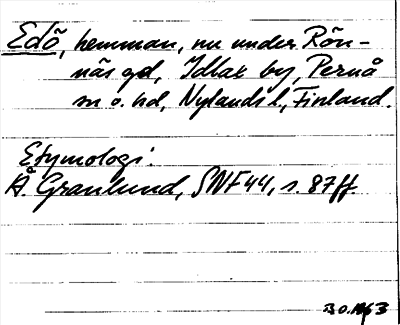 Edö, hemman, nu under Rön-
näs gd, Idlax by, Pernå
sn o. hd, Nylands l, Finland.
Etymologi:
Å. Granlund, SNF 44, s. 87ff.